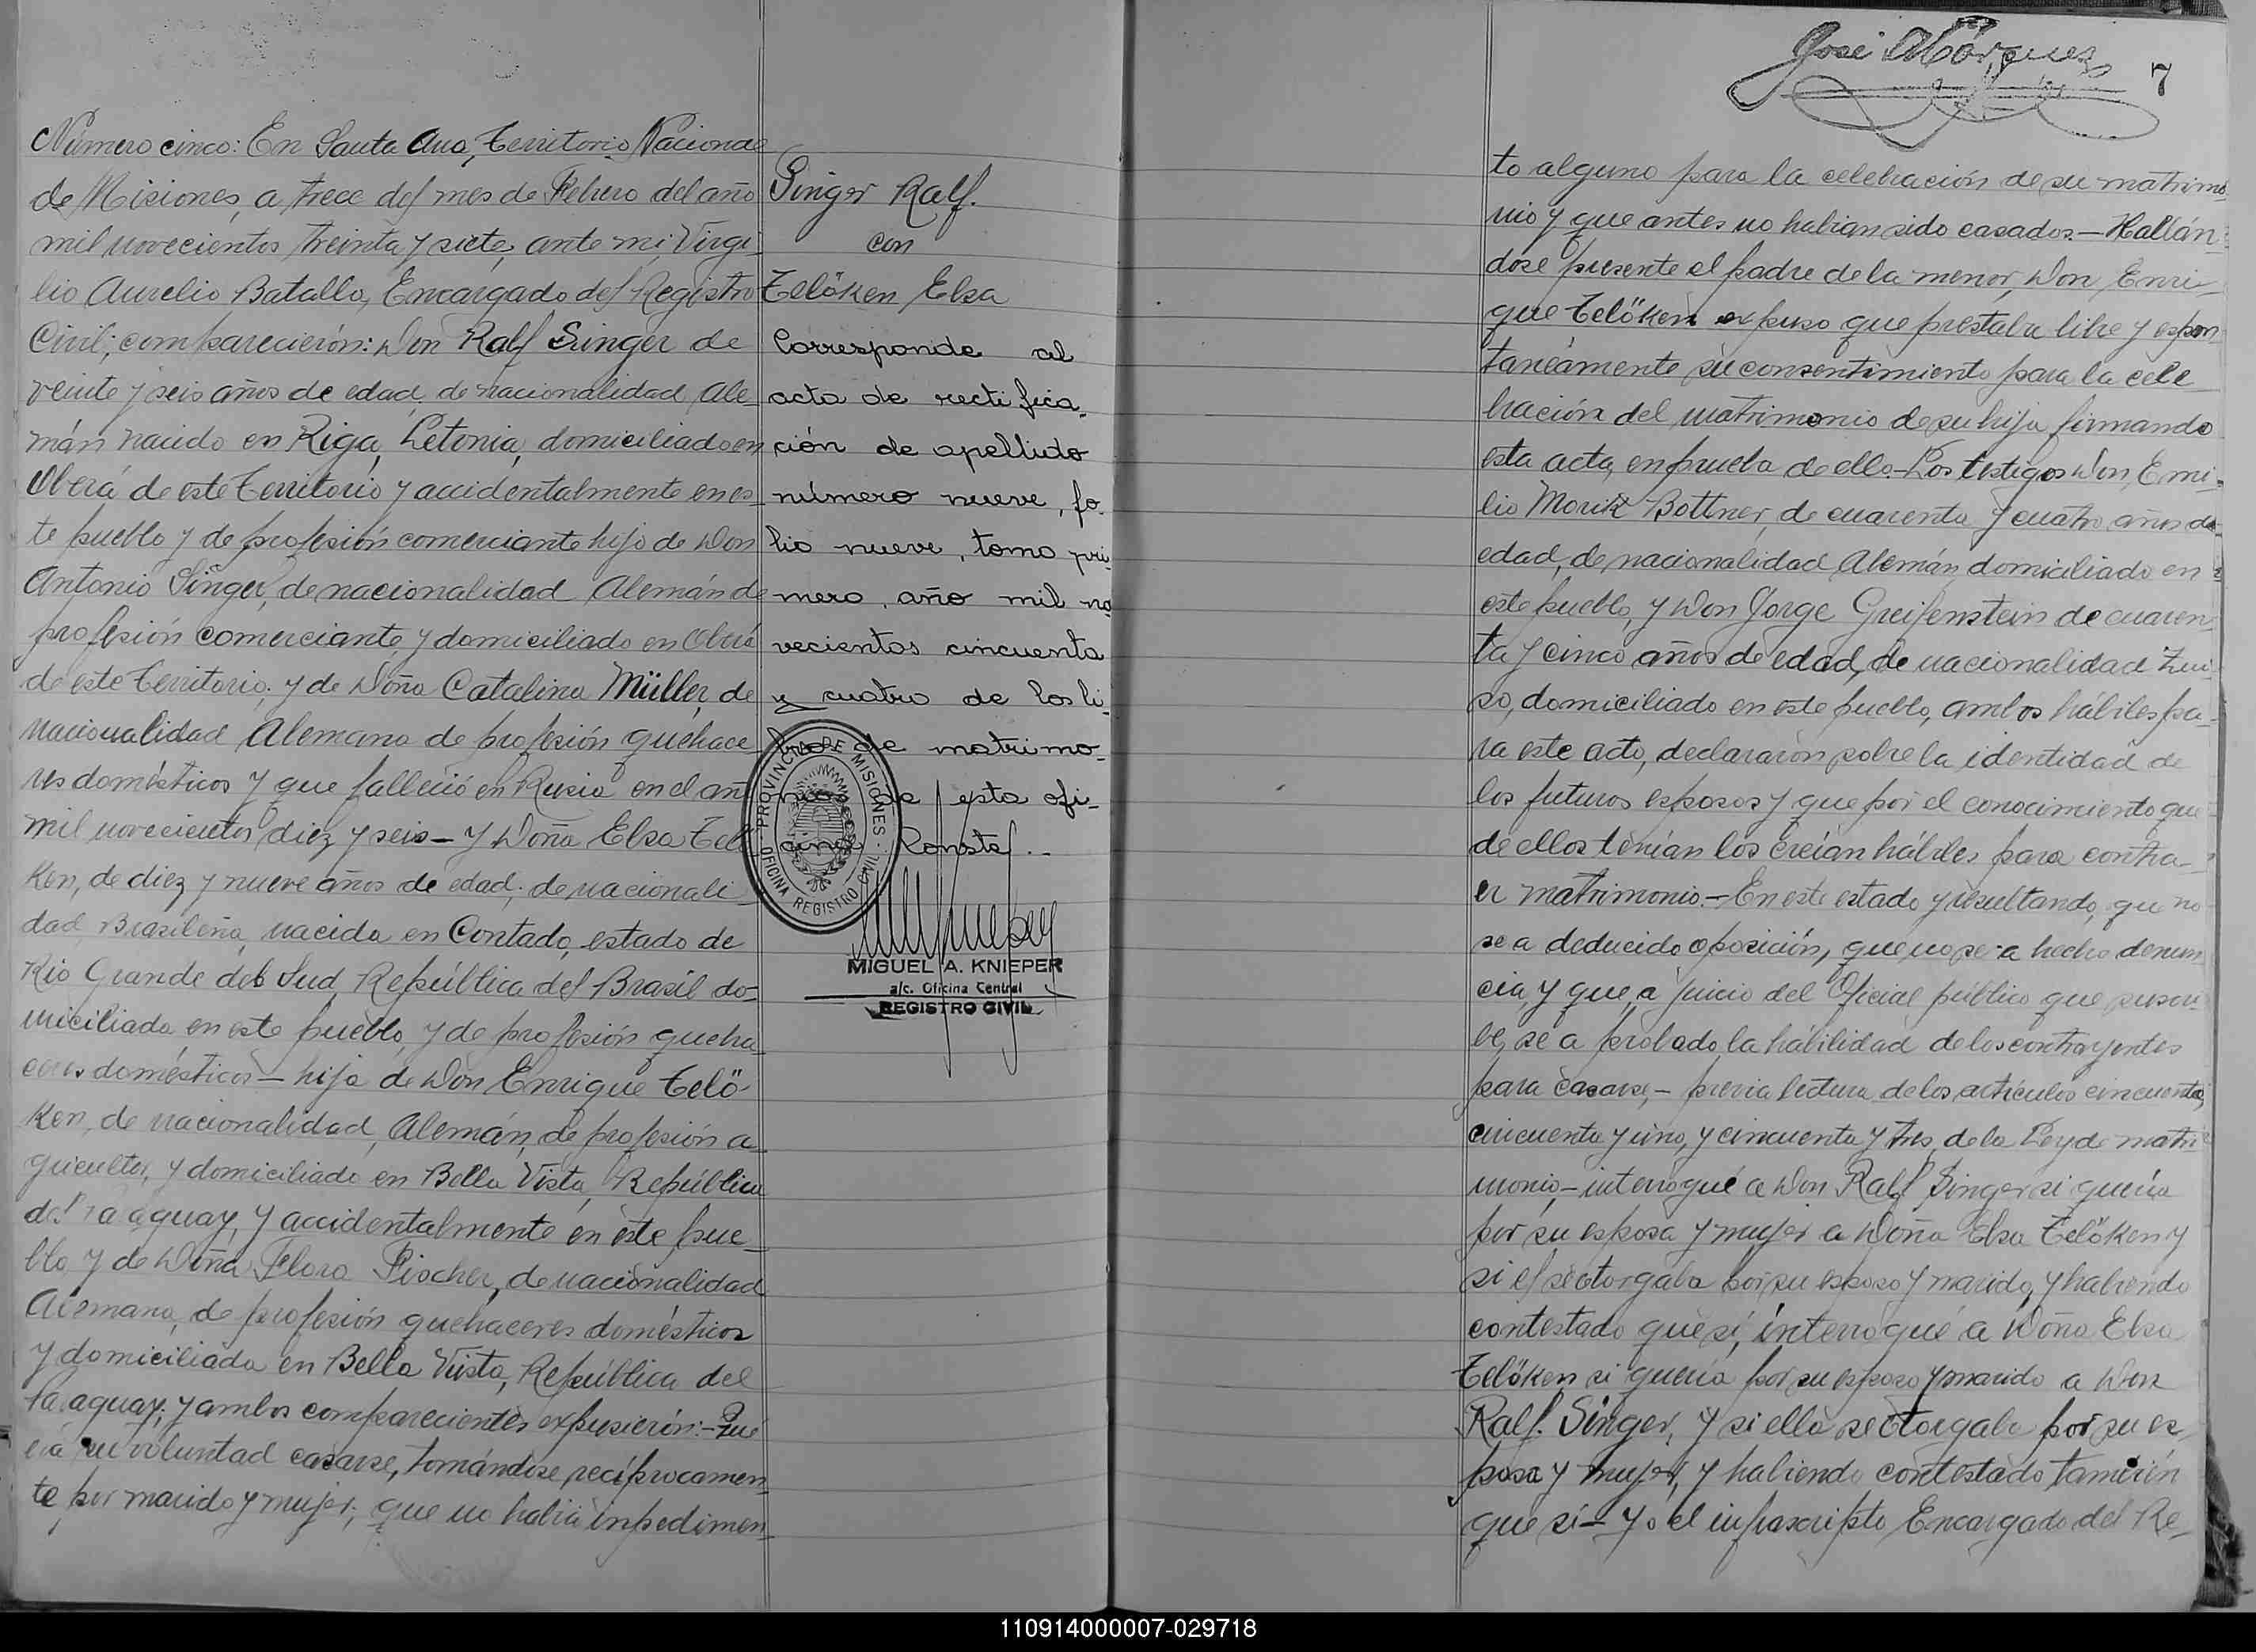 Número cinco: En Santa Ana, Territorio Nacional
de Misiones, a trece del mes de Febrero del año
mil novecientos treinta y siete, ante mi Virgi-
lio Aurelio Batallo, Encargado del Registro
Civil; comparecierón: Don Ralf Singer de
veinte y seis años de edad, de nacionalidad Ale-
mán nacido en Riga, Letonia, domiciliado en
Oberá de este Territorio y accidentalmente en es-
te pueblo y de profesión comerciante hijo de Don
Antonio Singer, de nacionalidad Alemán de
profesión comerciante, y domiciliado en Oberá
de este Territorio; y de Doña Catalina Müller, de
nacionalidad Alemana de profesión quehace-
res domésticos y que falleció en Rusia en el año
mil novecientos diez y seis - Y Doña Elsa Telö-
ken, de diez y nueve años de edad, de nacionali-
dad Brasileña, nacida en Contado, estado de
Rio Grande del Sud, República del Brasil do-
miciliada en este pueblo, y de profesión queha-
ceres domésticos - hija de Don Enrique Telö-
ken, de nacionalidad, Alemán, de profesión a-
gricultor, y domiciliado en Bella Vista, República
del Paraguay, y accidentalmente en este pue-
blo y de Doña Flora Fischer, de nacionalidad
Alemana, de profesión quehaceres domésticos
y domiciliada en Bella Vista, República del
Paraguay; y ambos comparecientes expusierón: - Que
era su voluntad casarse, tomándose recíprocamen-
te por marido y mujer; que no habia inpedimen-
Singer Ralf.
con
Telöken Elsa
Corresponde al
acta de rectifica-
ción de apellido
número nueve, fo-
lio nueve, tomo pri-
mero, año mil no-
vecientos cincuenta
y cuatro de los li-
bros de matrimo-
nios de esta ofi-
cina Conste.-
PROVINCIA DE MISIONES
OFICINA REGISTRO CIVIL
MIGUEL A. KNIEPER
a/c. Oficina Central
REGISTRO CIVIL
José Márquez
7
to alguno para la celebración de su matrimo-
nio y que antes no habian sido casados. - Hallán-
dose presente el padre de la menor, Don Enri-
que Telöken expuso que prestaba libre y espon-
taneámente su consentimiento para la cele-
bración del matrimonio de su hija firmando
esta acta, en prueba de ello. - Los testigos Don, Emi-
lio Morik Bottner, de cuarenta y cuatro años de
edad, de nacionalidad Alemán, domiciliado en
este pueblo, y Don Jorge Greifenstein de cuaren-
ta y cinco años de edad, de nacionalidad Zui-
so, domiciliado en este pueblo, ambos hábiles pa-
ra este acto, declararón sobre la identidad de
los futuros esposos y que por el conocimiento que
de ellos tenian los creían hábiles para contra-
er matrimonio. - En este estado y resultando, que no
se a deducido oposición, que no se a hecho denun-
cia, y que, a juicio del Oficial público que suscri-
be, se a probado la hábilidad de los contrayentes
para casarse, - previa lectura de los artículos cincuenta,
cincuenta y uno, y cincuenta y tres, de la Ley de matri-
monio, - interrogué a Don Ralf Singer si quería
por su esposa y mujer a Doña Elsa Telöken y
si el se otorgaba por su esposo y marido, y habiendo
contestado que sí, interrogué a Doña Elsa
Telöken si quería por su esposo y marido a Don
Ralf. Singer, y si ella se otorgaba por su es-
posa y mujer, y habiendo contestado también
que si - Yo el infrascripto Encargado del Re-
110914000007-029718